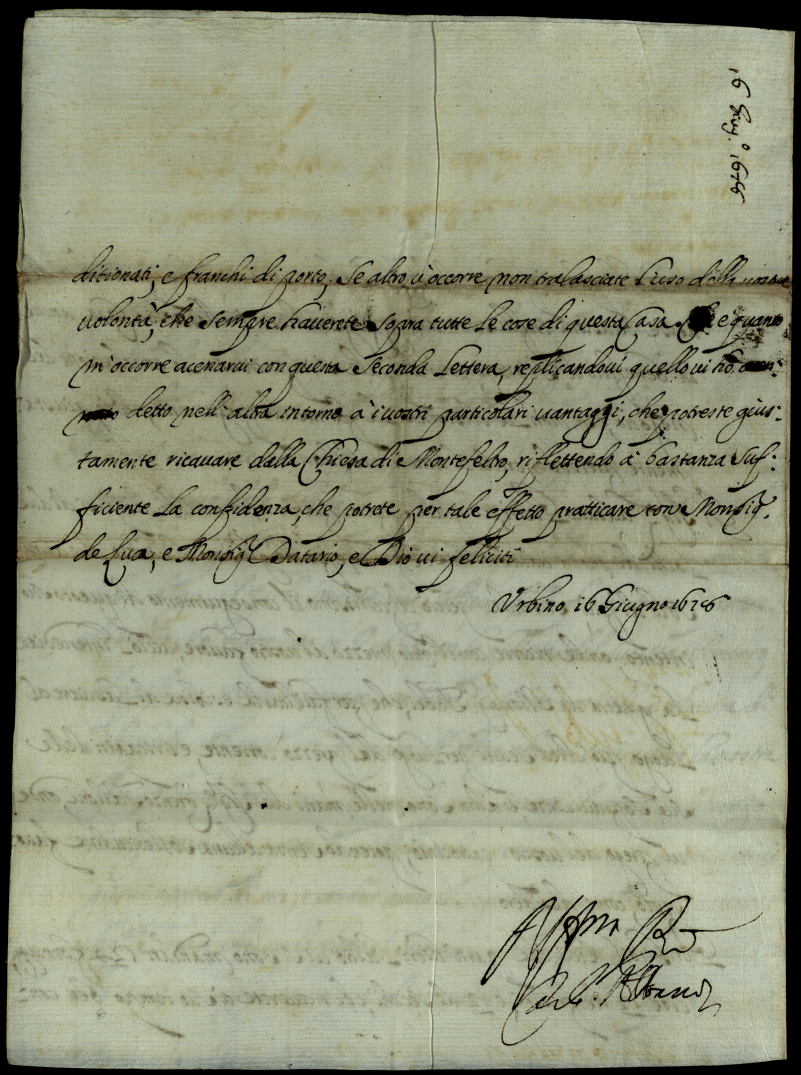 16 Giug.º 1678
ditionati, e franchi di porto, Se altro v'occorre non tralasciate l'uso della vostra
volontà, che sempre haverete sopra tutte le cose di questa Casa. Che è quanto
m'occorre acenarvi con questa Seconda Lettera, replicandovi quello vi hò
detto nell'altra intorno à i vostri particolari vantaggi, che potreste gius:
tamente ricavare dalla Chiesa di Montefeltro, riflettendo à bastanza suf:
ficiente la confidenza, che potrete per tale effetto pratticare con Monsig.
de Luca, e Monsig. Datario, e Dio vi feliciti
Urbino 16 Giugno 1678
Aff.mo
Car. Albani